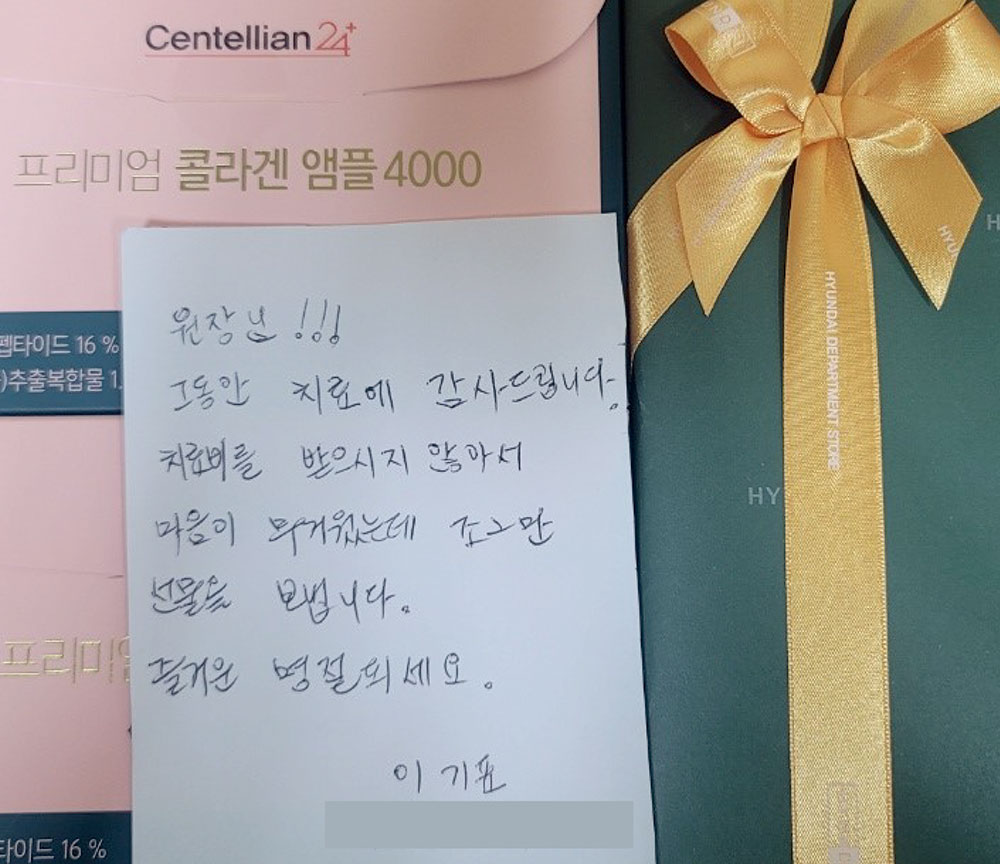 Centellian 24+
프리미엄 콜라겐 앰플 4000
펩타이드 16 %
)추출복합물 1.
원장님 !!!
그동안 치료에 감사드립니다.
치료비를 받으시지 않아서
마음이 무거웠는데 조그만
선물을 보냅니다.
즐거운 명절되세요.
이기표
프리미엄
타이드 16 %
HYUNDAI DEPARTMENT STORE
HYU
H
HY